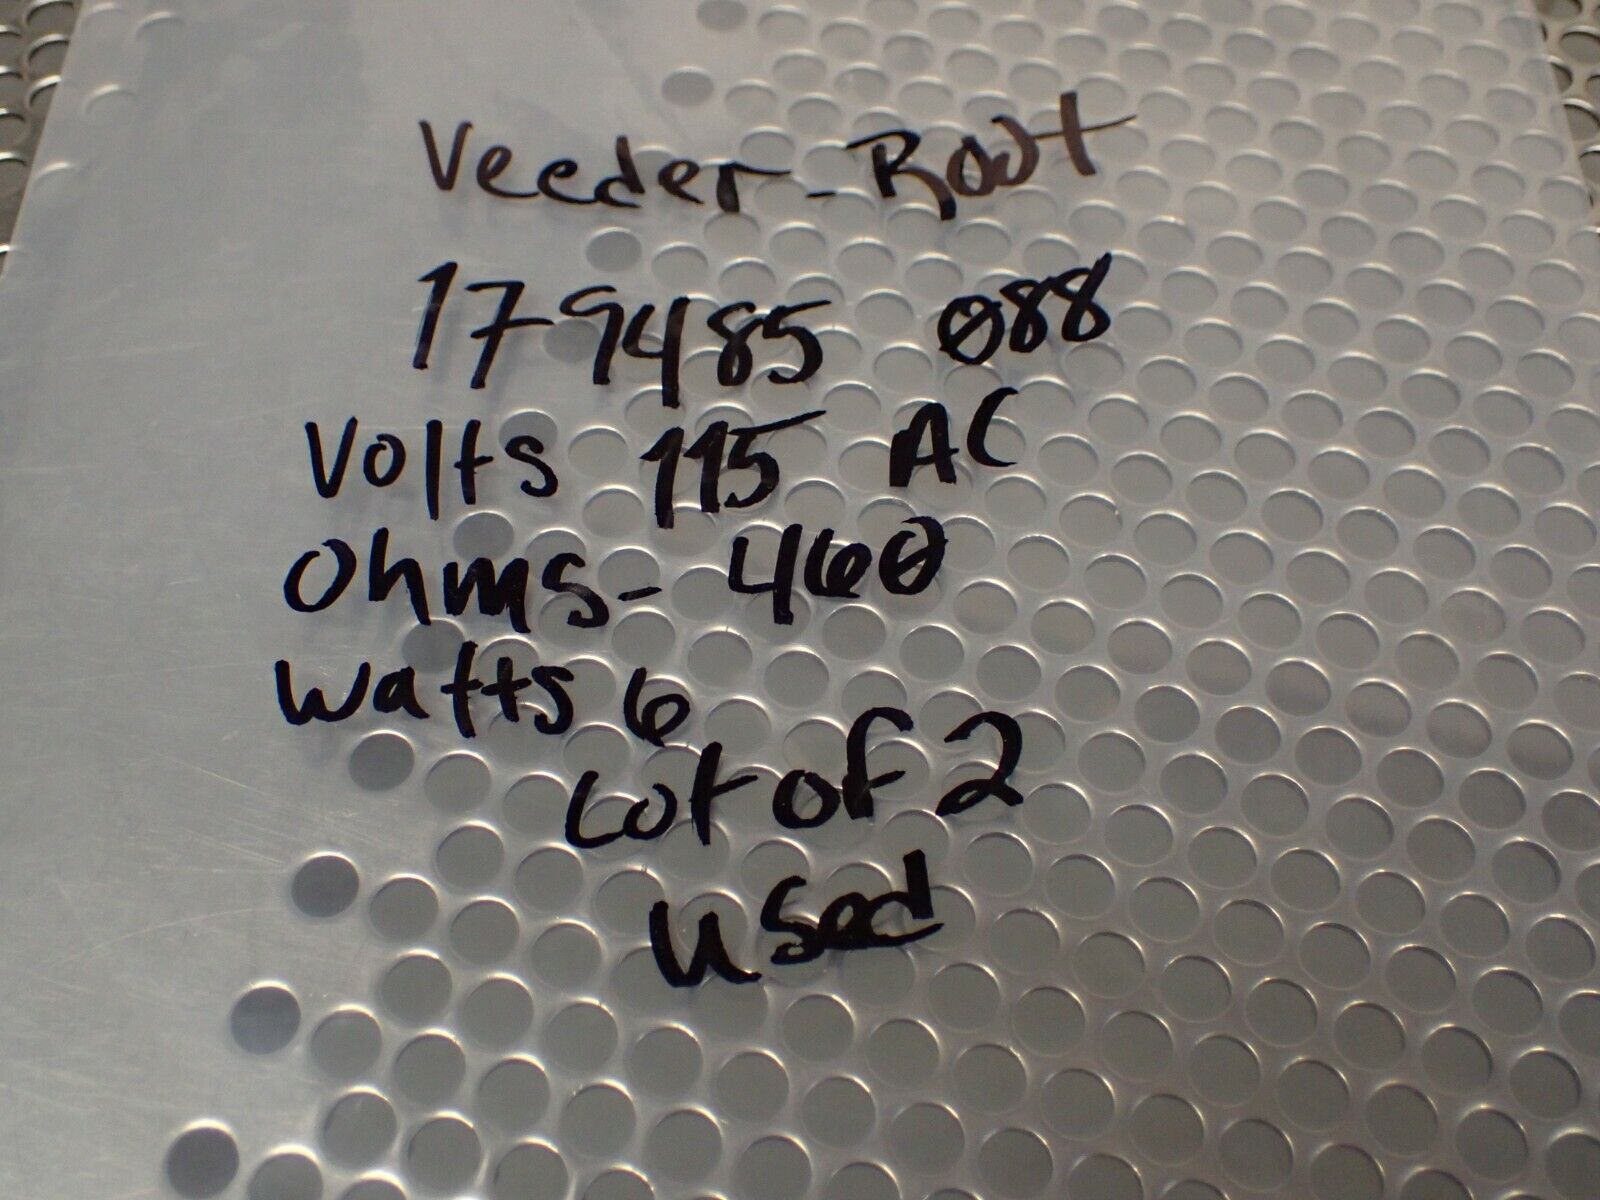 Veeder-Root
179485 088
Volts 115 AC
Ohms- 460
Watts 6
Lot of 2
Used